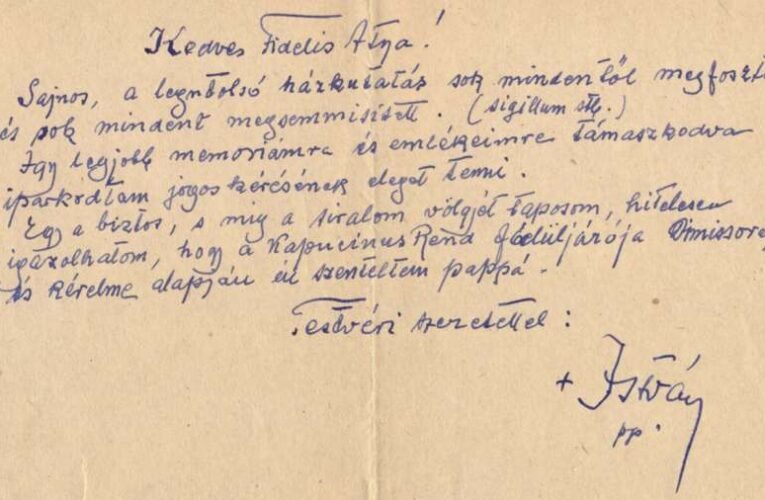 Kedves Fidelis Atya!
Sajnos, a legutolsó házkutatás sok mindentől megfoszt
és sok mindent megsemmisített. (sigillum stb.)
Így legjobb memoriámra és emlékeimre támaszkodva
iparkodtam jogos kérésének eleget tenni.
Egy a biztos, s míg a siralom völgyét taposom, hitelesen
igazolhatom, hogy a Kapucinus Rend Elöljárója Dimissore
és kérelme alapján én szenteltem pappá.
Testvéri szeretettel:
+ István
pp.